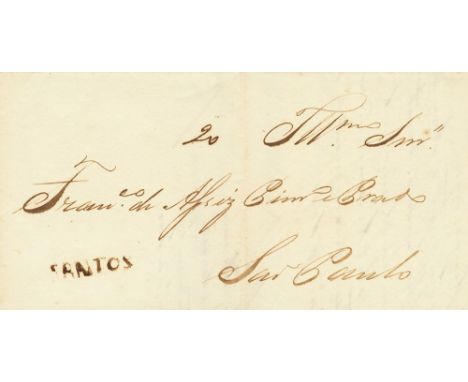 20 Illmo. Snr.
Franco. de Assiz Pimta e Prado
SANTOS
São Paulo